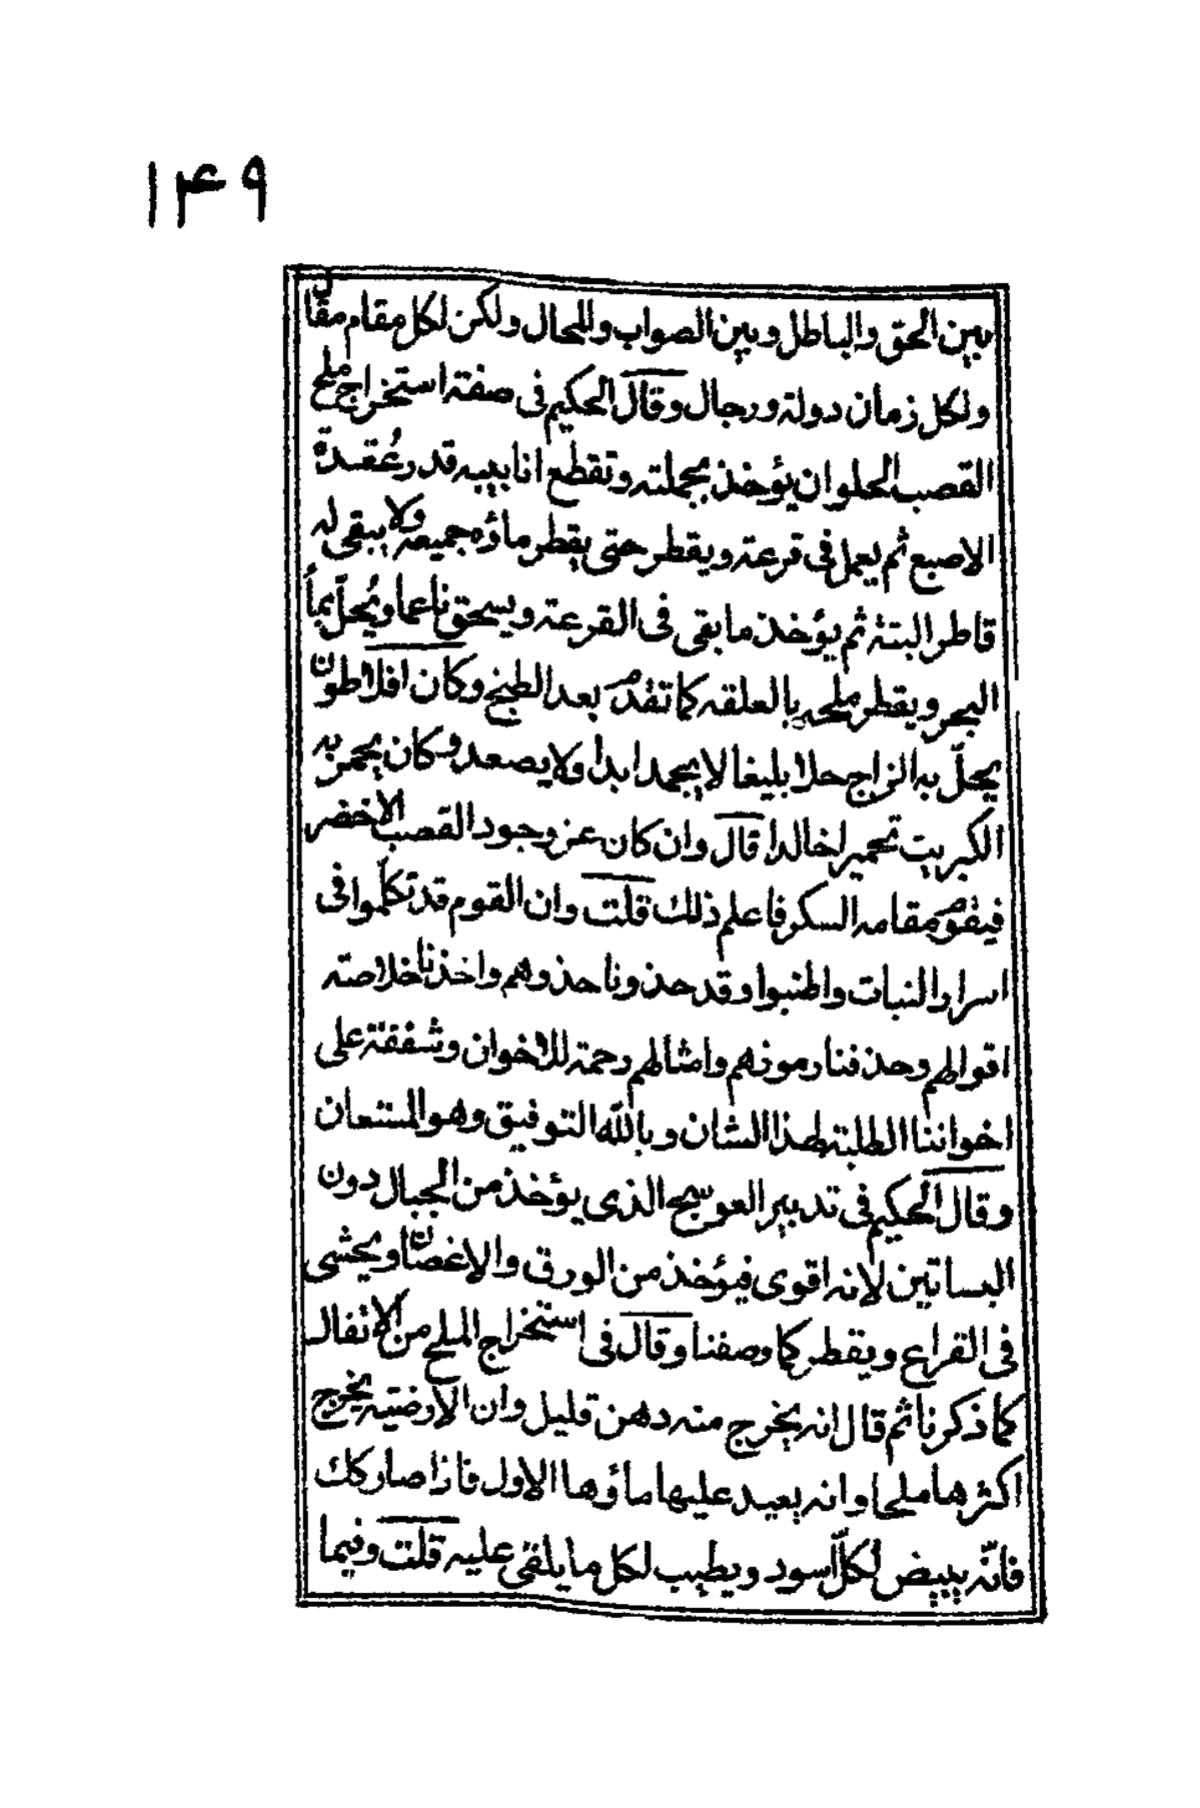 ۱۴۹
بين الحق والباطل وبين الصواب والمحال ولكن لكل مقام مقال
ولكل زمان دولة ورجال وقال الحكيم فى صفة استخراج ملح
القصب الحلو ان يؤخذ بجملته وتقطع انابيبه قدر عُقدة
الاصبع ثم يعمل فى قرعة ويقطر حتى يقطر ماؤه جميعه ولا يبقى له
قاطر البتة ثم يؤخذ ما بقى فى القرعة ويسحق ناعما ويُحلّ بمأ
البحر ويقطر ملحه بالعلقه كما تقدم بعد الطبخ وكان افلاطون
يحلّ به الزاج حلا بليغا لا يجمد ابدا ولا يصعد وكان يحمر به
الكبريت تحميرا خالدا قال وان كان عز وجود القصب الاخضر
فيقوم مقامه السكر فاعلم ذلك قلت وان القوم قد تكلّموا فى
اسرار النبات واطنبوا وقد حذونا حذوهم واخذنا خلاصته
اقوالهم وحذفنا رموزهم وامثالهم رحمة للاخوان وشفقة على
اخواننا الطلبة لهذا الشان وبالله التوفيق وهو المستعان
وقال الحكيم فى تدبير العوسج الذى يؤخذ من الجبال دون
البساتين لانه اقوى فيؤخذ من الورق والاغصان ويحشى
فى القراع ويقطر كما وصفنا وقال فى استخراج الملح من الاتفال
كما ذكرنا ثم قال انه يخرج منه دهن قليل وان الارضيه يخرج
اكثرها ملحا وانه يعيد عليها ماؤها الاول فاذا صار كك
فانّه يبيض لكلّ اسود ويطيب لكل ما يلقى عليه قلت وفيما